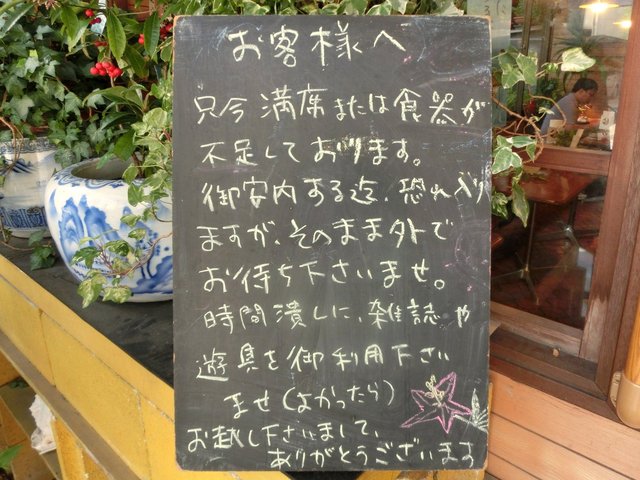 お客様へ
只今 満席 または 食器が
不足しております。
御案内する迄、恐れ入り
ますが、そのまま外で
お待ち下さいませ。
時間潰しに、雑誌や
遊具を御利用下さい
ませ(よかったら)
お越し下さいまして、
ありがとうございます